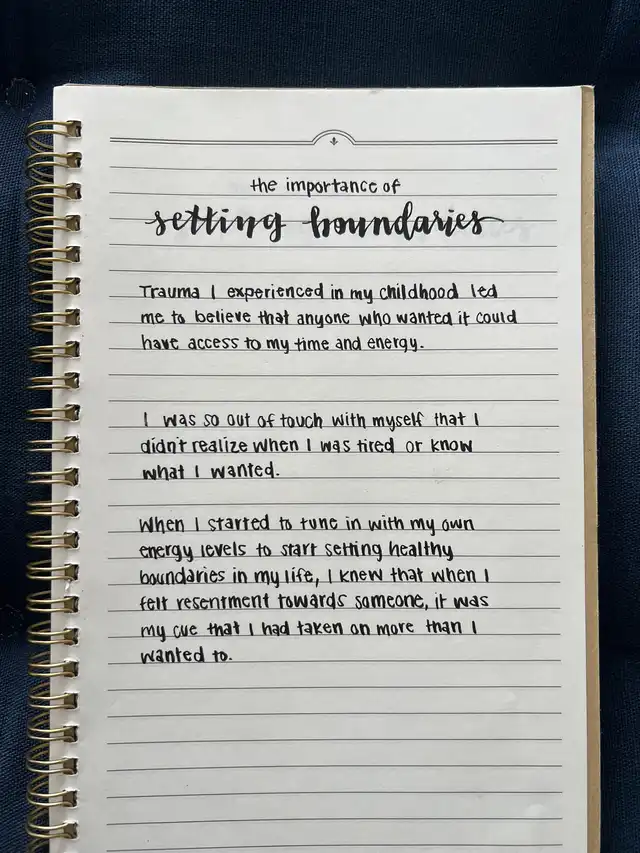 the importance of
setting boundaries
Trauma I experienced in my childhood led
me to believe that anyone who wanted it could
have access to my time and energy.
I was so out of touch with myself that I
didn't realize when I was tired or know
what I wanted.
When I started to tune in with my own
energy levels to start setting healthy
boundaries in my life, I knew that when I
felt resentment towards someone, it was
my cue that I had taken on more than I
wanted to.